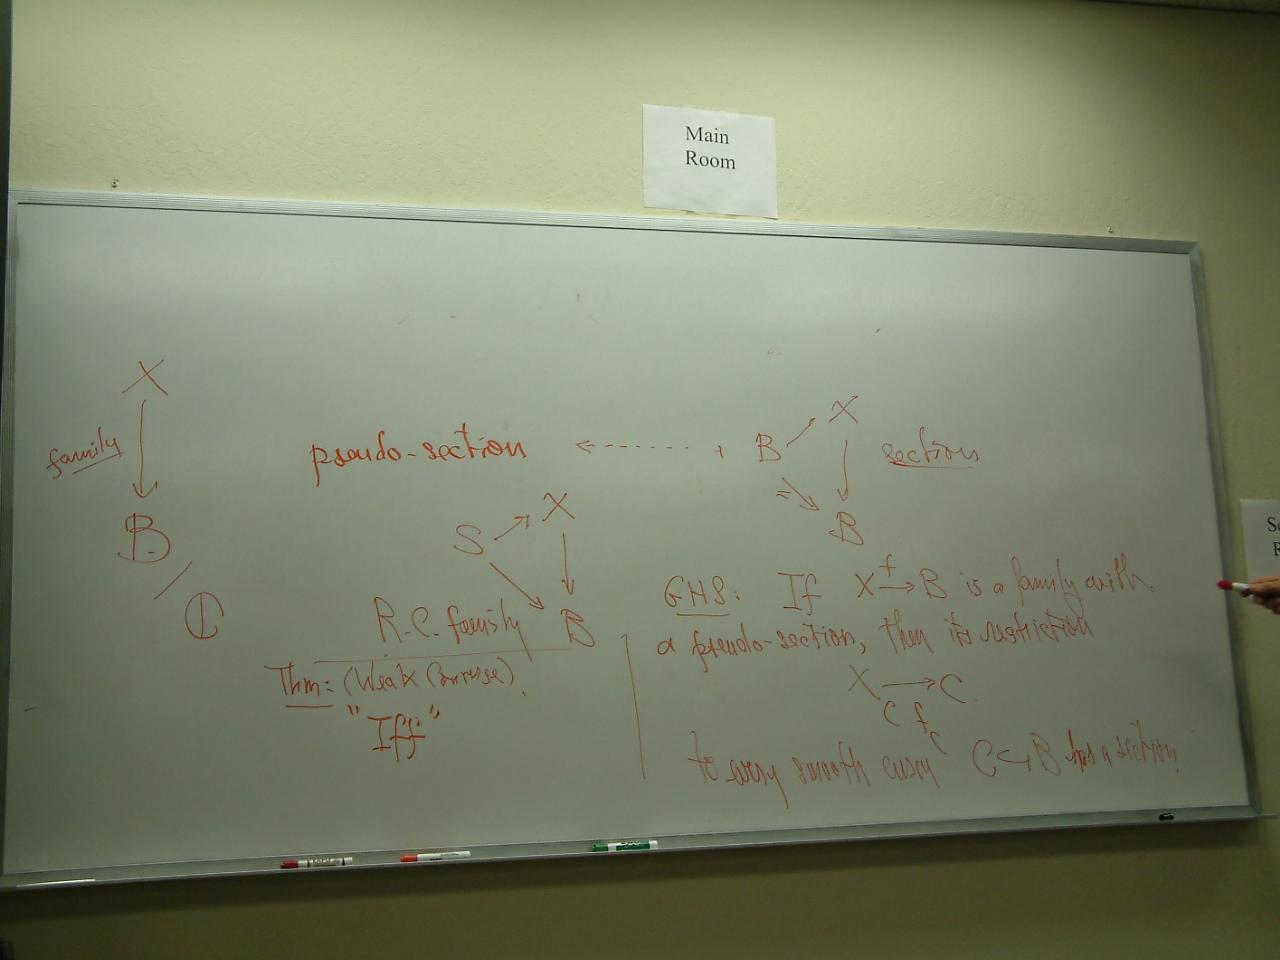 Main
Room
X
family
B
C
pseudo-section
S
X
B
R.C. family
Thm: (Weak Converse).
"Iff"
B
X
B
=
section
GHS: If X f→ B is a family with
a pseudo-section, then its restriction
X_C →f_C C
to every smooth curve C ↪ B has a section.